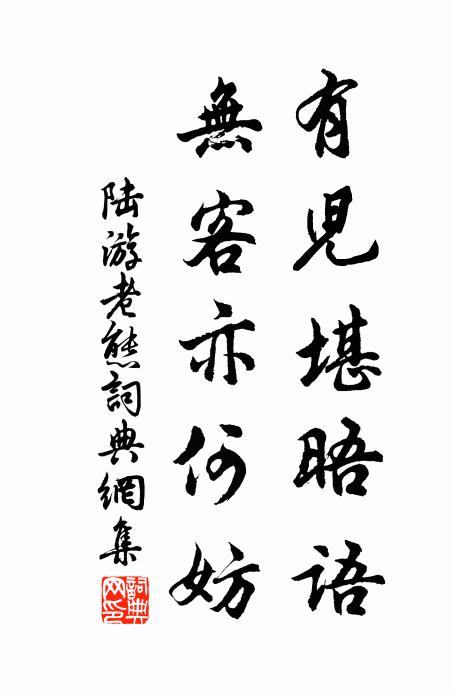 有児堪晤語
無客亦何妨
陆游老熊詞典網集
詞典网印